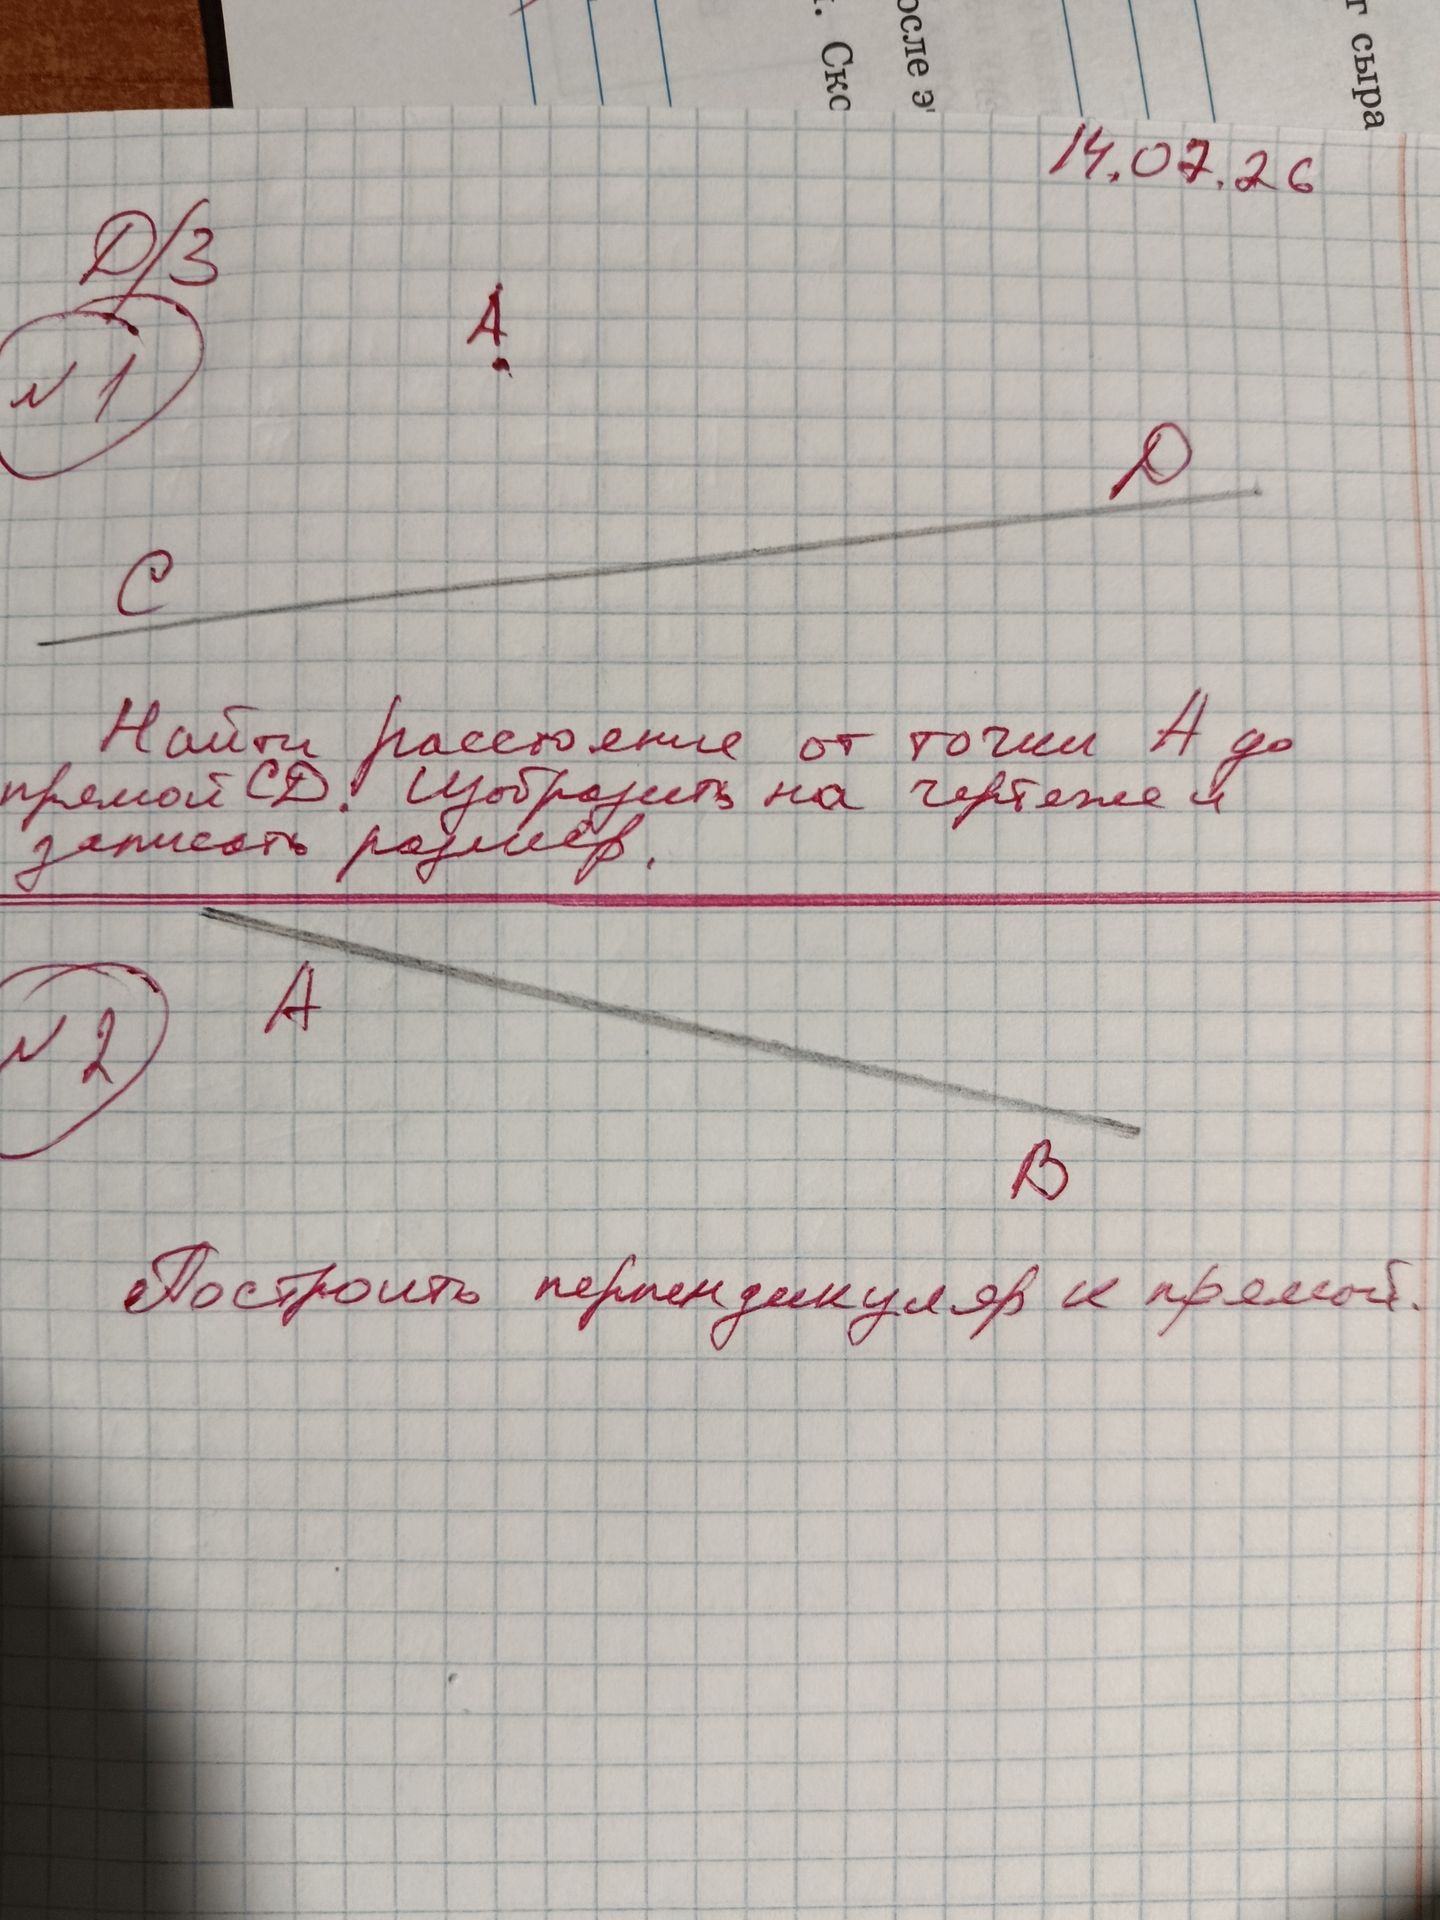 г сыра
осле э
. Скс
14.07.26
Д/З
А
№1
Д
С
Найти расстояние от точки А до
прямой СД. Изобразить на чертеже и
записать размер.
А
№2
В
Построить перпендикуляр к прямой.